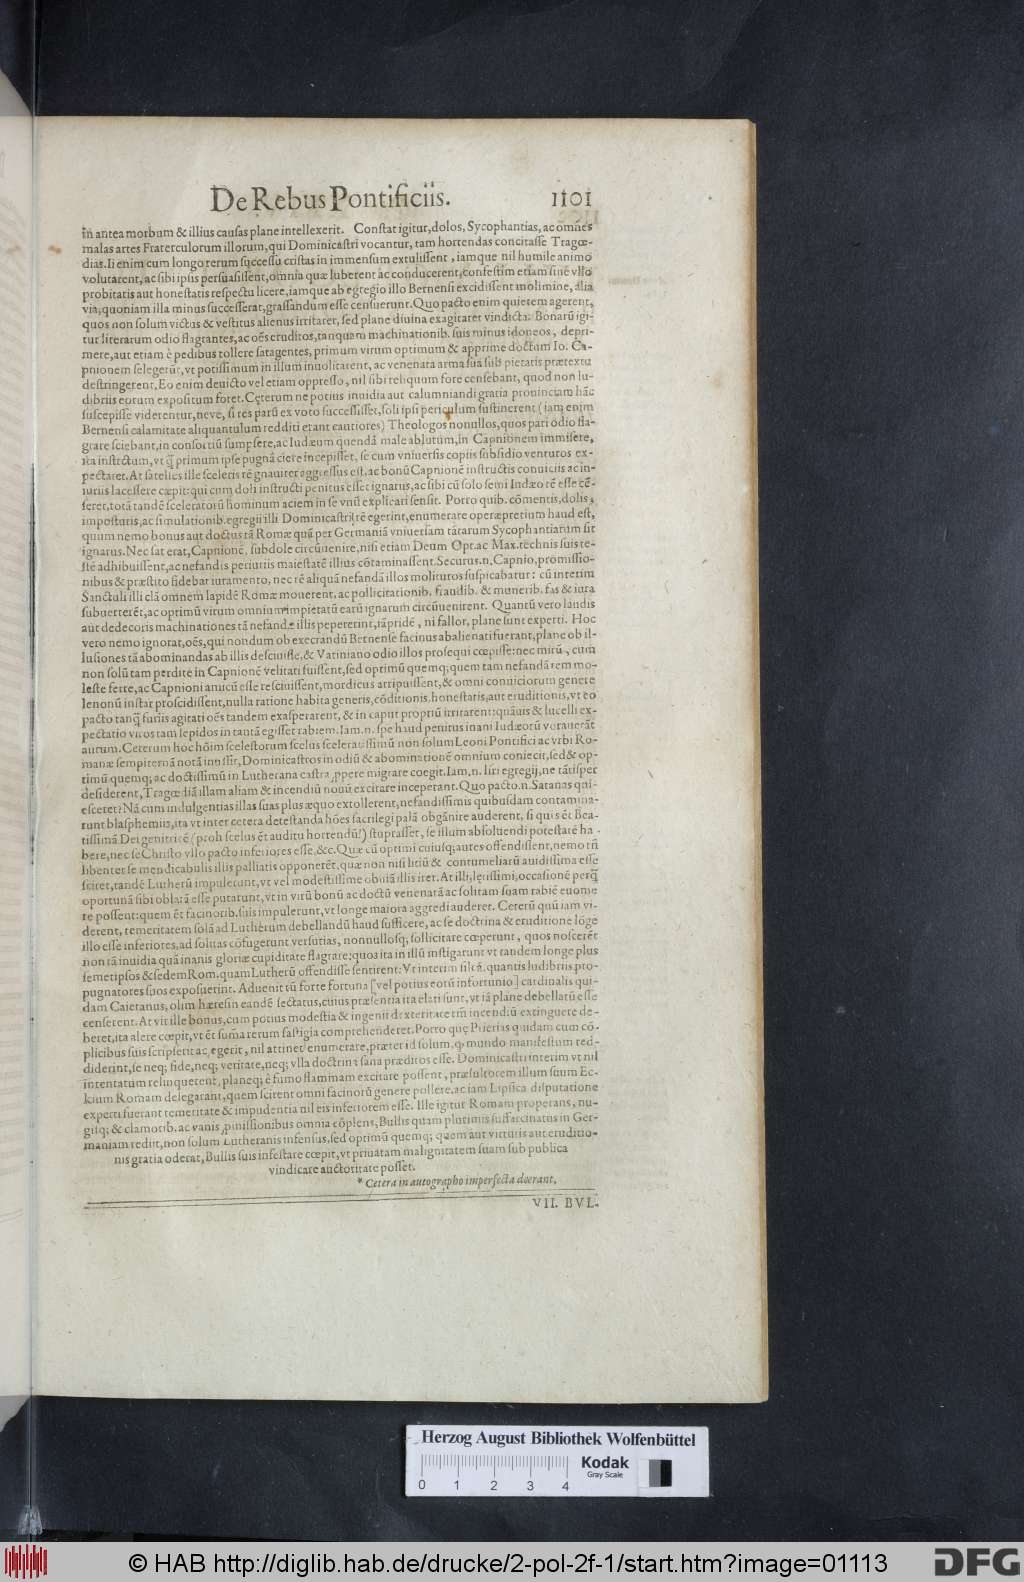 De Rebus Pontificiis. 1101
in antea morbum & illius causas plane intellexerit. Constat igitur, dolos, Sycophantias, ac omnes
malas artes Fraterculorum illorum, qui Dominicastri vocantur, tam horrendas concitasse Tragœ-
dias. Ii enim cum longo rerum successu cristas in immensum extulissent, iamque nil humile animo
volutarent, ac sibi ipsis persuasissent, omnia quæ luberent ac conducerent, confestim etiam sine vllo
probitatis aut honestatis respectu licere, iamque ab egregio illo Bernensi excidissent molimine, alia
via, quoniam illa minus successerat, grassandum esse censuerunt. Quo pacto enim quietem agerent,
quos non solum victus & vestitus alienus irritaret, sed plane diuina exagitaret vindicta: Bonarū igi-
tur literarum odio flagrantes, ac oēs eruditos, tanquam machinationib. suis minus idoneos, depri-
mere, aut etiam è pedibus tollere satagentes, primum virum optimum & apprime doctum Io. Ca-
pnionem selegerūt, vt potissimum in illum inuolitarent, ac venenata arma sua sub pietatis prætextu
destringerent, Eo enim deuicto vel etiam oppresso, nil sibi reliquum fore censebant, quod non lu-
dibriis eorum expositum foret. Cęterum ne potius inuidia aut calumniandi gratia prouinciam hāc
suscepisse viderentur, neve, si res parū ex voto successisset, soli ipsi periculum sustinerent (iam enim
Bernensi calamitate aliquantulum redditi erant cautiores) Theologos nonullos, quos pari odio fla-
grare sciebant, in consortiū sumpsere, ac Iudæum quendā male ablutum, in Capnionem immisere,
ita instrctum, vt q̄ primum ipse pugnā ciere incepisset, se cum vniuersis copiis subsidio venturos ex-
pectaret. At satelles ille sceleris rē gnauiter aggressus est, ac bonū Capnionē instructis conuiciis ac in-
iuriis lacessere cœpit: qui cum doli instructi penitus esset ignarus, ac sibi cū solo semi Iudæo rē esse cē-
seret, totā tandē sceleratorū hominum aciem in se vnū explicari sensit. Porro quib. cōmentis, dolis,
imposturis, ac simulationib. egregii illi Dominicastri rē egerint, enumerare operæpretium haud est,
quum nemo bonus aut doctus tā Romæ quā per Germaniā vniuersam tātarum Sycophantiarum sit
ignarus. Nec sat erat, Capnionē, subdole circūuenire, nisi etiam Deum Opt. ac Max. technis suis te-
stē adhibuissent, ac nefandis periuriis maiestatē illius cōtaminassent. Securus.n. Capnio, promissio-
nibus & præstito fidebat iuramento, nec rē aliquā nefandā illos molituros suspicabatur: cū interim
Sanctuli illi clā omnem lapidē Romæ mouerent, ac pollicitationib. fraudib. & munerib. fas & iura
subuerterēt, ac optimū virum omnium impietatū earū ignarum circūuenirent. Quantū vero laudis
aut dedecoris machinationes tā nefandæ illis pepererint, iāpridē, ni fallor, plane sunt experti. Hoc
vero nemo ignorat, oēs, qui nondum ob execrandū Bernense facinus abalienati fuerant, plane ob il-
lusiones tā abominandas ab illis desciuisse, & Vatiniano odio illos prosequi cœpisse: nec mirū, cum
non solū tam perdite in Capnionē velitati fuissent, sed optimū quemq; quem tam nefandā rem mo-
leste ferre, ac Capnioni amicū esse resciuissent, mordicus arripuissent, & omni conuiciorum genere
lenonū instar proscidissent, nulla ratione habita generis, cōditionis, honestatis, aut eruditionis, vt eo
pacto tanq̄ furiis agitati oēs tandem exasperarent, & in caput propriū irritarent: quāuis & lucelli ex-
pectatio viros tam lepidos in tantā egisset rabiem. Iam.n. spe haud penitus inani Iudæorū vorauerāt
aurum. Ceterum hoc hōim scelestorum scelus sceleratissimū non solum Leoni Pontifici ac vrbi Ro-
manæ sempiternā notā inussit, Dominicastros in odiū & abominationē omnium coniecit, sed & op-
timū quemq; ac doctissimū in Lutherana castra ꝓpere migrare coegit. Iam.n. isti egregij, ne tātisper
desiderent, Tragœdiā illam aliam & incendiū nouū excitare inceperant. Quo pacto.n. Satanas qui-
esceret? Nā cum indulgentias illas suas plus æquo extollerent, nefandissimis quibusdam contamina-
runt blasphemiis, ita vt inter cetera detestanda hōes sacrilegi palā obgānire auderent, si quis ēt Bea-
tissimā Dei genitricē (proh scelus ēt auditu horrendū!) stuprasset, se illum absoluendi potestatē ha-
bere, nec se Christo vllo pacto inferiores esse, &c. Quæ cū optimi cuiusq; aures offendissent, nemo tn̄
libenter se mendicabulis illis palliatis opponerēt, quæ non nisi litiū & contumeliarū auidissima esse
sciret, tandē Lutherū impulerunt, vt vel modestissime obuiā illis iret. At illi, lętissimi, occasionē perq̄
oportunā sibi oblatā esse putarunt, vt in virū bonū ac doctū venenatā ac solitam suam rabiē euome
re possent: quem ēt facinorib. suis impulerunt, vt longe maiora aggredi auderet. Ceterū quū iam vi-
derent, temeritatem solā ad Lutherum debellandū haud sufficere, ac se doctrina & eruditione lōge
illo esse inferiores, ad solitas cōfugerunt versutias, nonnullosq; sollicitare cœperunt, quos noscerēt
non tā inuidia quā inanis gloriæ cupiditate flagrare; quos ita in illū instigarunt vt tandem longe plus
semetipsos & sedem Rom. quam Lutherū offendisse sentirent: Vt interim sileā, quantis ludibriis pro-
pugnatores suos exposuerint. Aduenit tū forte fortuna [vel potius eorū infortunio] cardinalis qui-
dam Caietanus, olim hæresin eandē sectatus, cuius præsentia ita elati sunt, vt iā plane debellatū esse
censerent. At vir ille bonus, cum potius modestia & ingenii dexteritate tm̄ incendiū extinguere de-
beret, ita alere cœpit, vt ēt sum̄a rerum fastigia comprehenderet. Porro quę Prierias quidam cum cō-
plicibus suis scripserit ac egerit, nil attinet enumerare, præter id solum, q; mundo manifestum red-
diderint, se neq; fide, neq; veritate, neq; vlla doctrina sana præditos esse. Dominicastri interim vt nil
intentatum relinquerent, planeq; è fumo flammam excitare possent, præsultorem illum suum Ec-
kium Romam delegarant, quem scirent omni facinorū genere pollere, ac iam Lipsica disputatione
experti fuerant temeritate & impudentia nil eis inferiorem esse. Ille igitur Romam properans, nu-
gisq; & clamorib. ac vanis ꝓmissionibus omnia cōplens, Bullis quam plurimis suffarcinatus in Ger-
maniam rediit, non solum Lutheranis infensus, sed optimū quemq; quem aut virtutis aut eruditio-
nis gratia oderat, Bullis suis infestare cœpit, vt priuatam malignitatem suam sub publica
vindicare auctoritate posset.
* Cetera in autographo imperfecta deerant.
VII. BVL-
Herzog August Bibliothek Wolfenbüttel
0 1 2 3 4
Kodak
Gray Scale
© HAB http://diglib.hab.de/drucke/2-pol-2f-1/start.htm?image=01113
DFG